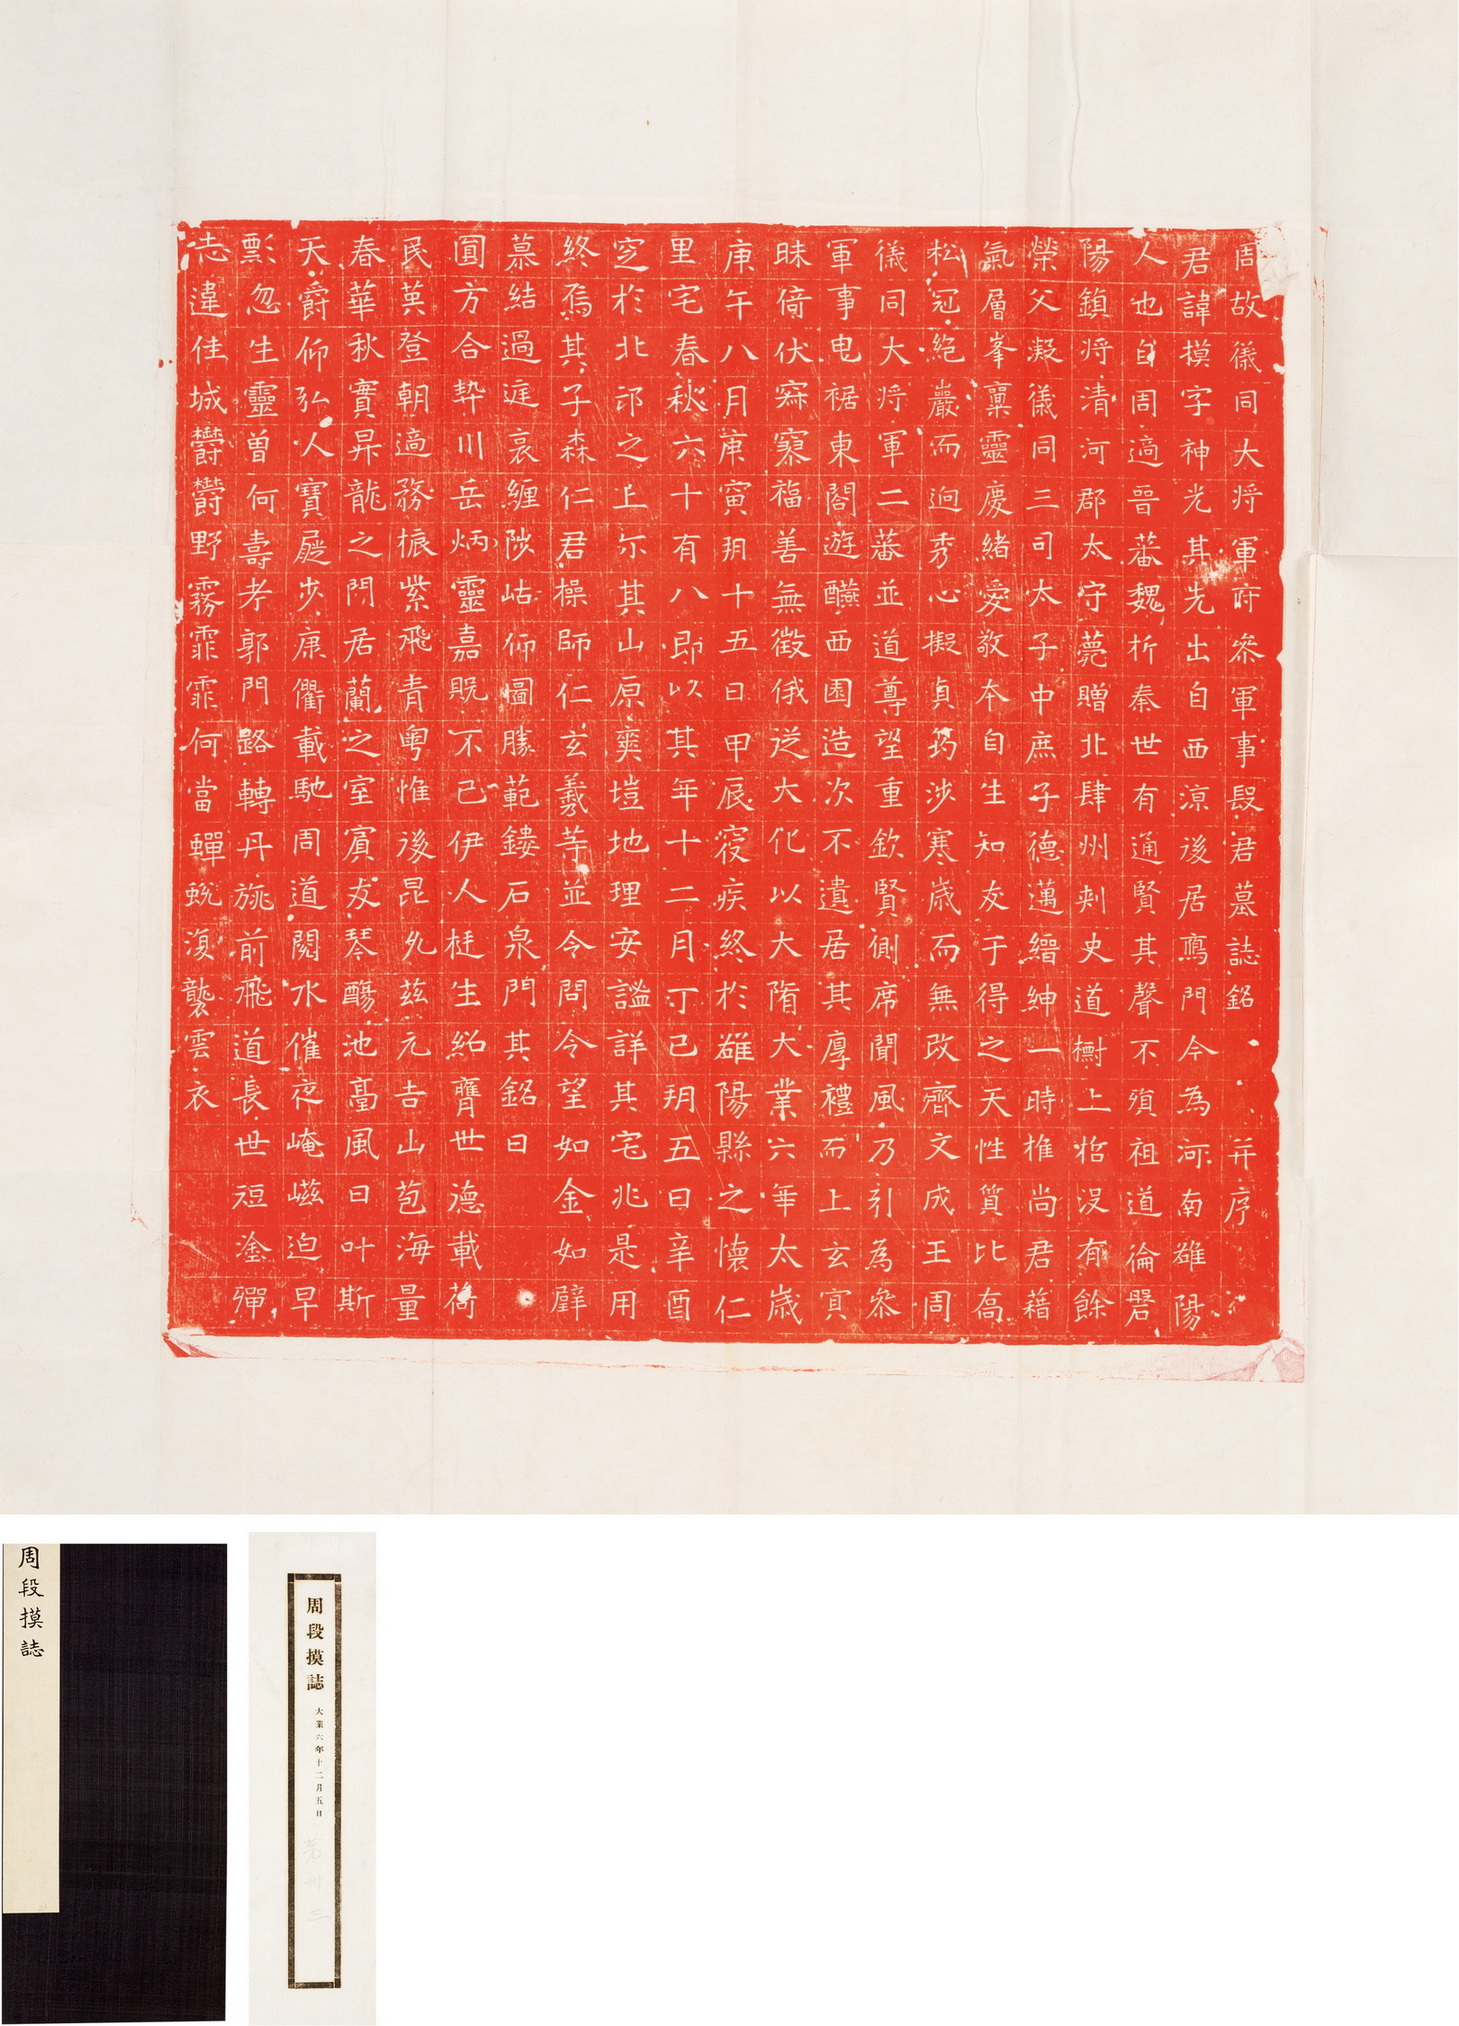 周故儀同大將軍府參軍事段君墓誌銘并序
君諱摸字神光其先出自西涼後居鴈門今為河南雒陽
人也自周適晉蕃魏析秦世有通賢其聲不殞祖道倫䁂
陽鎮將清河郡太守薨贈北肆州刾史道檦上㭘沒有餘
榮父凝儀同三司太子中庶子德邁縉紳一時推尚君藉
氣層峯稟靈慶緒愛敬本自生知友于得之天性質比高
松冠絕巖而迥秀心擬貞筠涉寒歲而無改齊文成王周
儀同大將軍二蕃並道尊望重欽賢側席聞風乃引為參
軍事曳裾東閣遊醼西園造次不遺居其厚禮而上玄冥
昧倚伏寐寥福善無徵俄從大化以大隋大業六年太歲
庚午八月庚寅玥十五日甲辰寑疾終於雒陽縣之懷仁
里宅春秋六十有八即以其年十二月丁巳玥五日辛酉
窆於北邙之上尒其山原爽塏地理安謐詳其宅兆是用
終焉其子森仁君操師仁玄義等並令問令望如金如璧
慕結過庭哀纏陟岵仰圖勝範鏤石泉門其銘曰
圓方合埶川岳炳靈嘉貺不已伊人挺生紹膺世德載荷
民英登朝適務振紫飛青粵惟後昆允茲元吉山苞海量
春華秋實昇龍之門居蘭之室賓友琴觴池臺風日叶斯
天爵仰弘人寶屣步康衢載馳周道閱水催夜崦嵫迫早
飄忽生靈曾何壽考郭門路轉丹旐前飛道長世短塗殫
志違佳城鬱鬱野霧霏霏何當蟬蛻復襲雲衣
周段摸誌
周段摸誌
大業六年十二月五日
第卅三